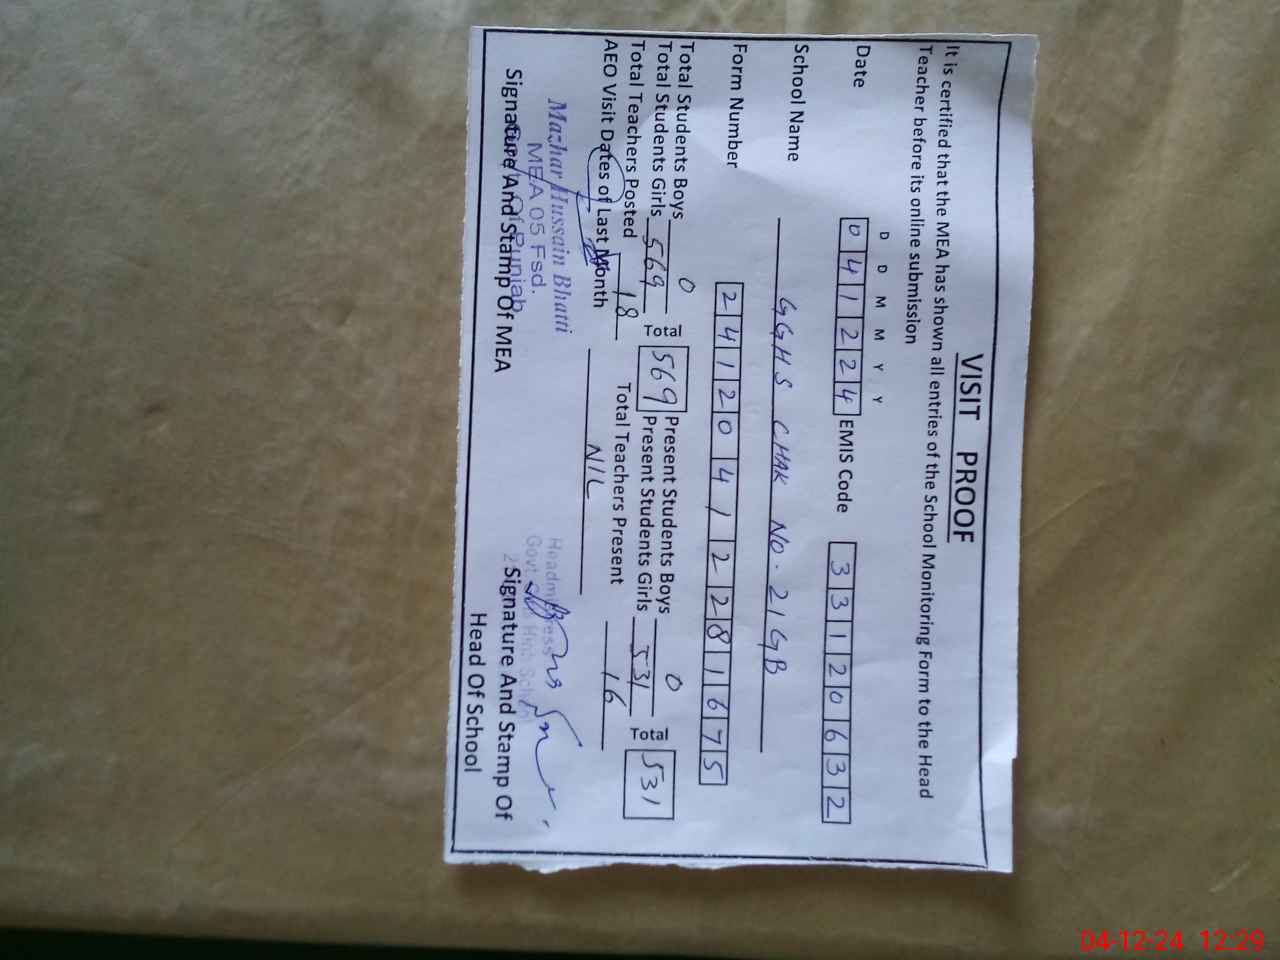 VISIT PROOF
It is certified that the MEA has shown all entries of the School Monitoring Form to the Head
Teacher before its online submission
D D M M Y Y
Date 041224 EMIS Code 33120632
School Name GGHS CHAK NO. 21GB
Form Number 24120412281675
Total Students Boys 0 Present Students Boys 0
Total Students Girls 569 Total 569 Present Students Girls 531 Total 531
Total Teachers Posted 18 Total Teachers Present 16
AEO Visit Dates of Last Month NIL
Mazhar Hussain Bhatti
MEA 05 Fsd.
Of Punjab
Signature And Stamp Of MEA
Headmistress
Govt High School
Signature And Stamp Of
Head Of School
04-12-24 12:29